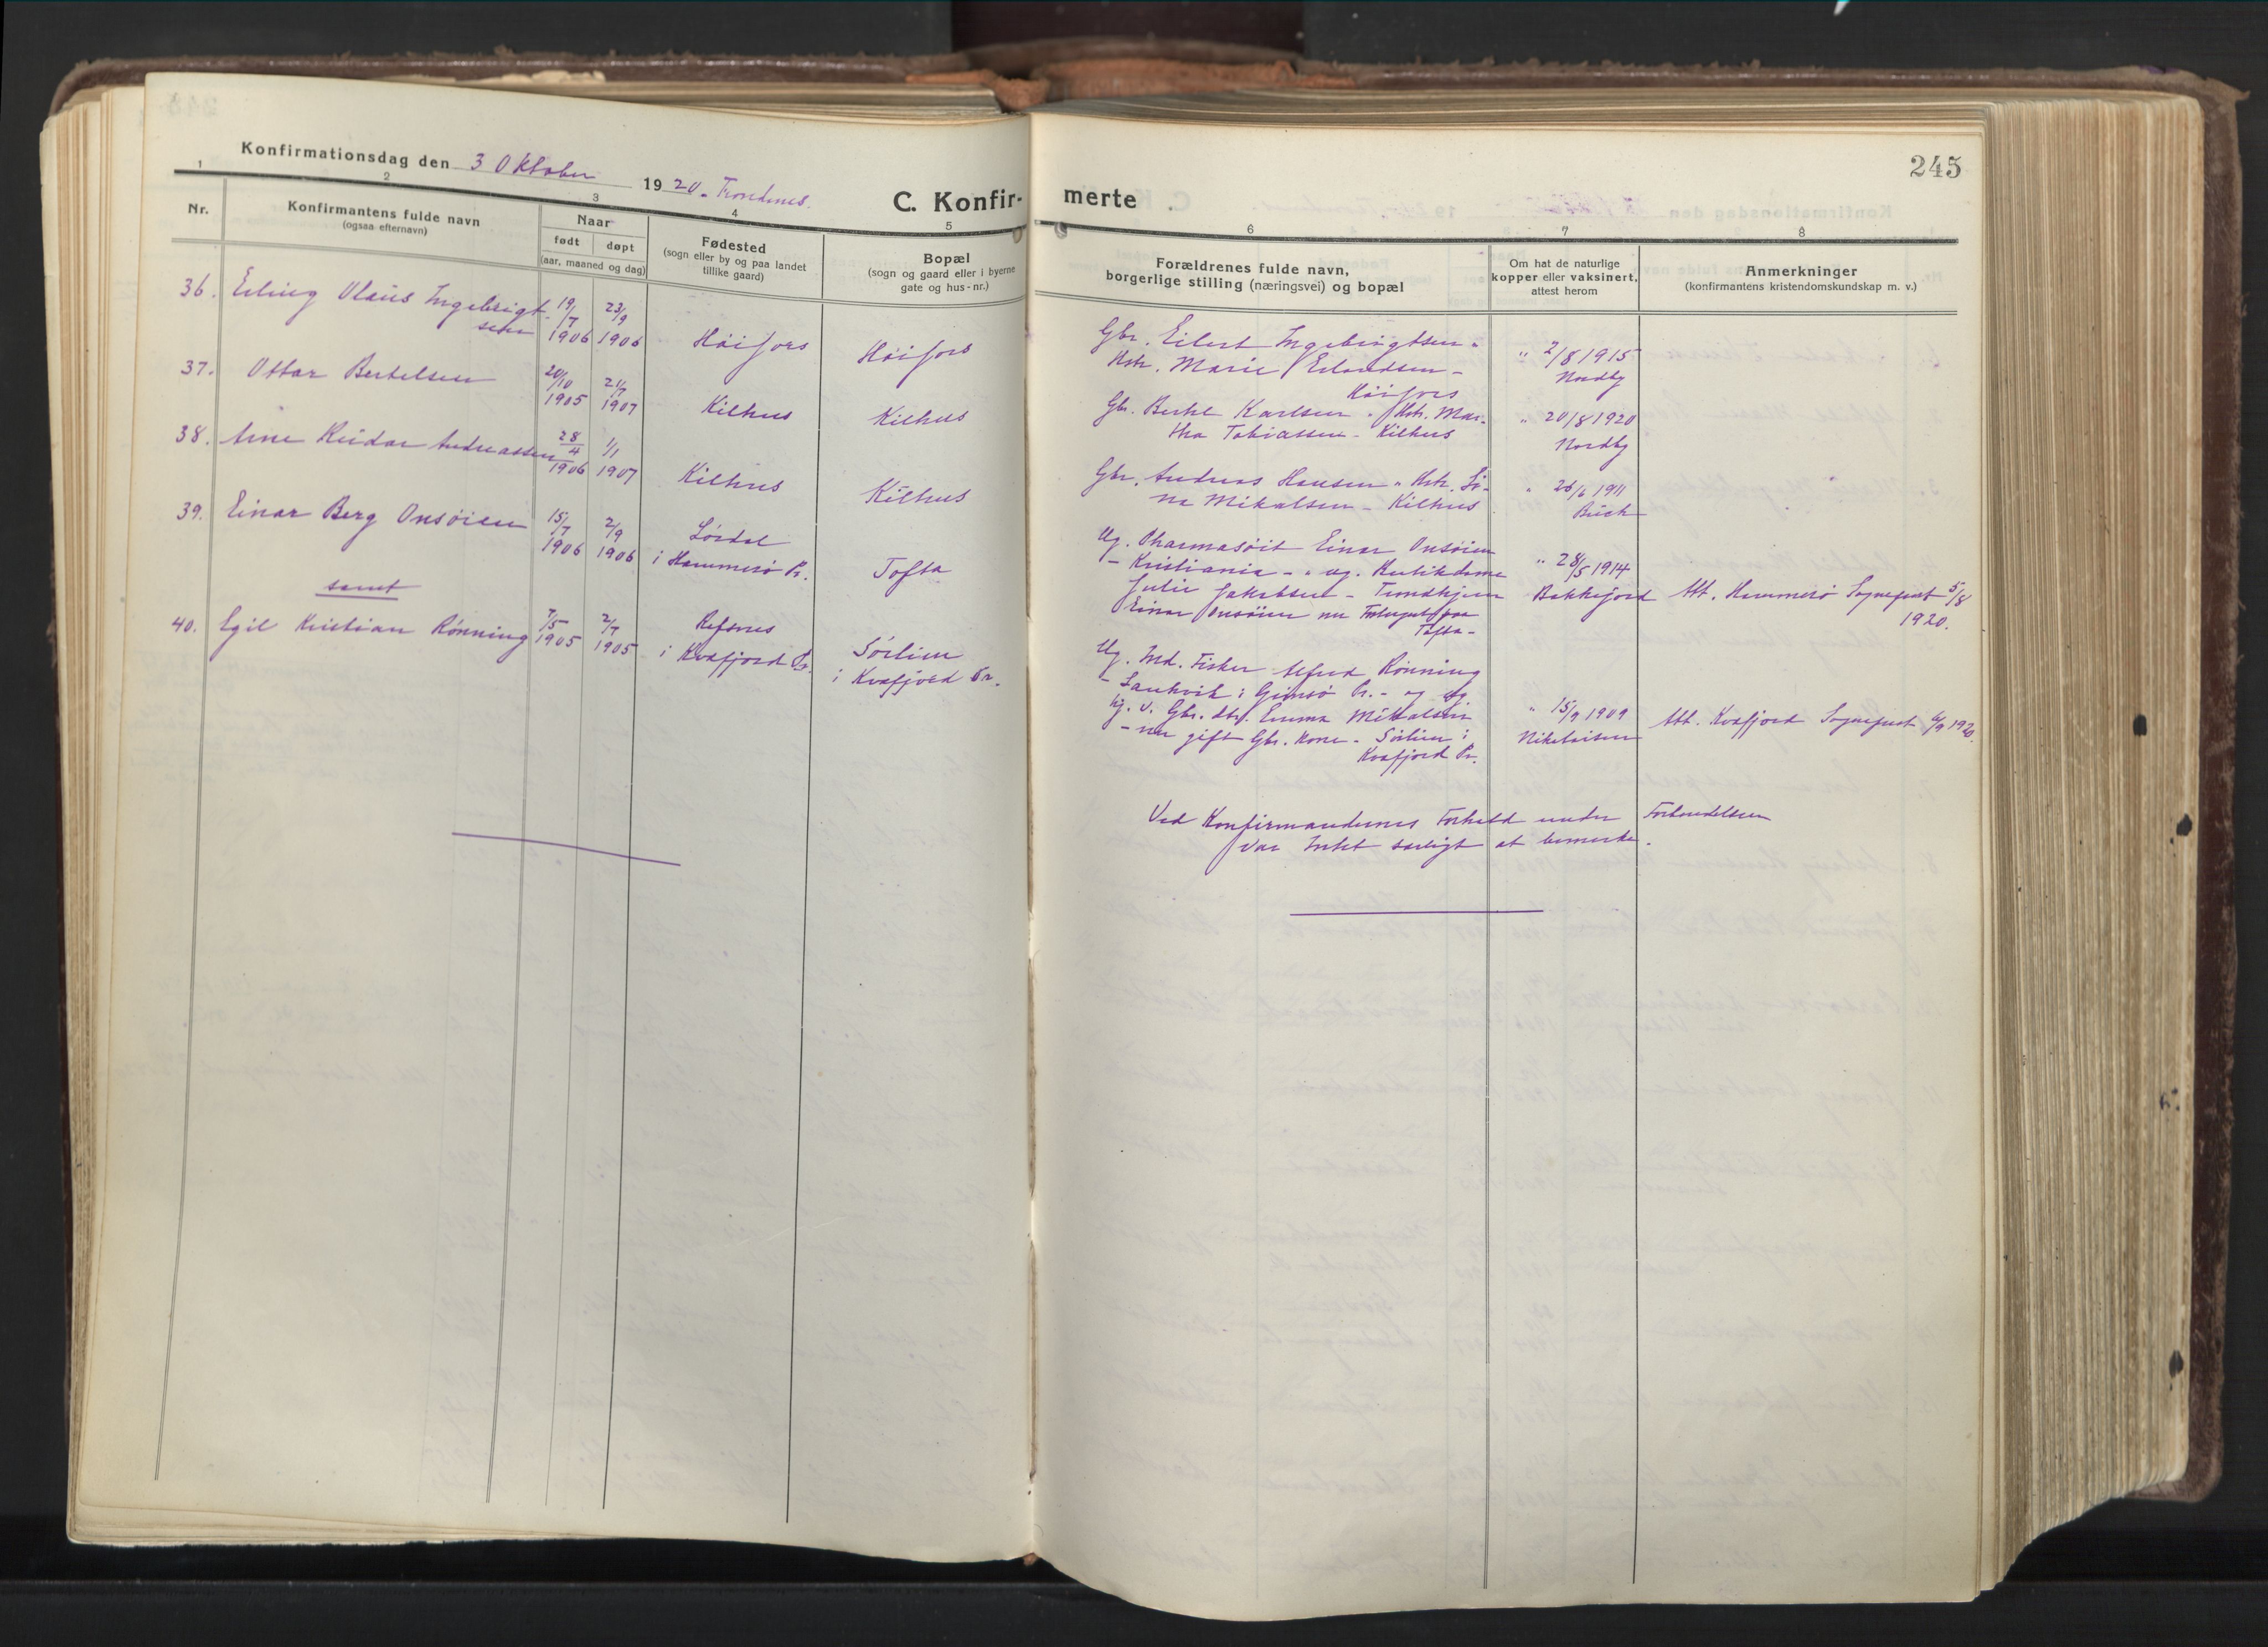 245
Konfirmationsdag den 3 Oktober 1920 - Trondenes.
C. Konfirmerte
1 2 3 4 5 6 7 8
Nr.
Konfirmantens fulde navn
(ogsaa efternavn)
Naar
født døpt
(aar, maaned og dag)
Fødested
(sogn eller by og paa landet
tillike gaard)
Bopæl
(sogn og gaard eller i byerne
gate og hus-nr.)
Forældrenes fulde navn,
borgerlige stilling (næringsvei) og bopæl
Om hat de naturlige
kopper eller vaksinert,
attest herom
Anmerkninger
(konfirmantens kristendomskundskap m. v.)
36. Erling Olaus Ingebrigt-
sen
19/7 1906 23/9 1906
Høifors Høifors
Gbr. Eilert Ingebrigtsen "
Hstr. Marie Erlandsen -
Høifors
" 2/8 1915
Nordby
37. Ottar Bertelsen
20/10 1905 21/7 1907
Kilhus Kilhus
Gbr. Berthe Karlsen " Hstr. Mar-
tha Tobiassen - Kilhus
" 20/8 1920
Nordby
38. Arne Reidar Andreassen
28/4 1906 1/1 1907
Kilhus Kilhus
Gbr. Andreas Hansen " Hstr. Li-
na Mikalsen - Kilhus
" 26/6 1911
Buch
39. Einar Berg Onsøien
15/7 1906 2/9 1906
Lørdal
i Hammerø Pr.
Tofta
Ug. Pharmasøit Einar Onsøien
- Kristiania - " ug. Butikdame
Julie Jakobsen - Trondhjem
Einar Onsøien nu paa
Tofta -
" 28/5 1914
Bakkejord
Att. Hammerø Sogneprest 5/8
1920.
samt
40. Egil Kristian Rønning
7/5 1905 2/7 1905
Refsnes
i Kvæfjord Pr.
Sørlien
i Kvæfjord Pr.
Ug. Ind. Fisker Alfred Rønning
- Laukvik i Gimsø Pr. - og ug.
Gbr. dtr. Emma Mikalsen
- nu gift Gbr. kone - Sørlien i
Kvæfjord Pr.
" 15/9 1909
Nikolaisen
Att. Kvæfjord Sogneprest 6/9 1920.
Ved Konfirmandernes Forhold under Forberedelsen
var Intet særligt at bemerke.